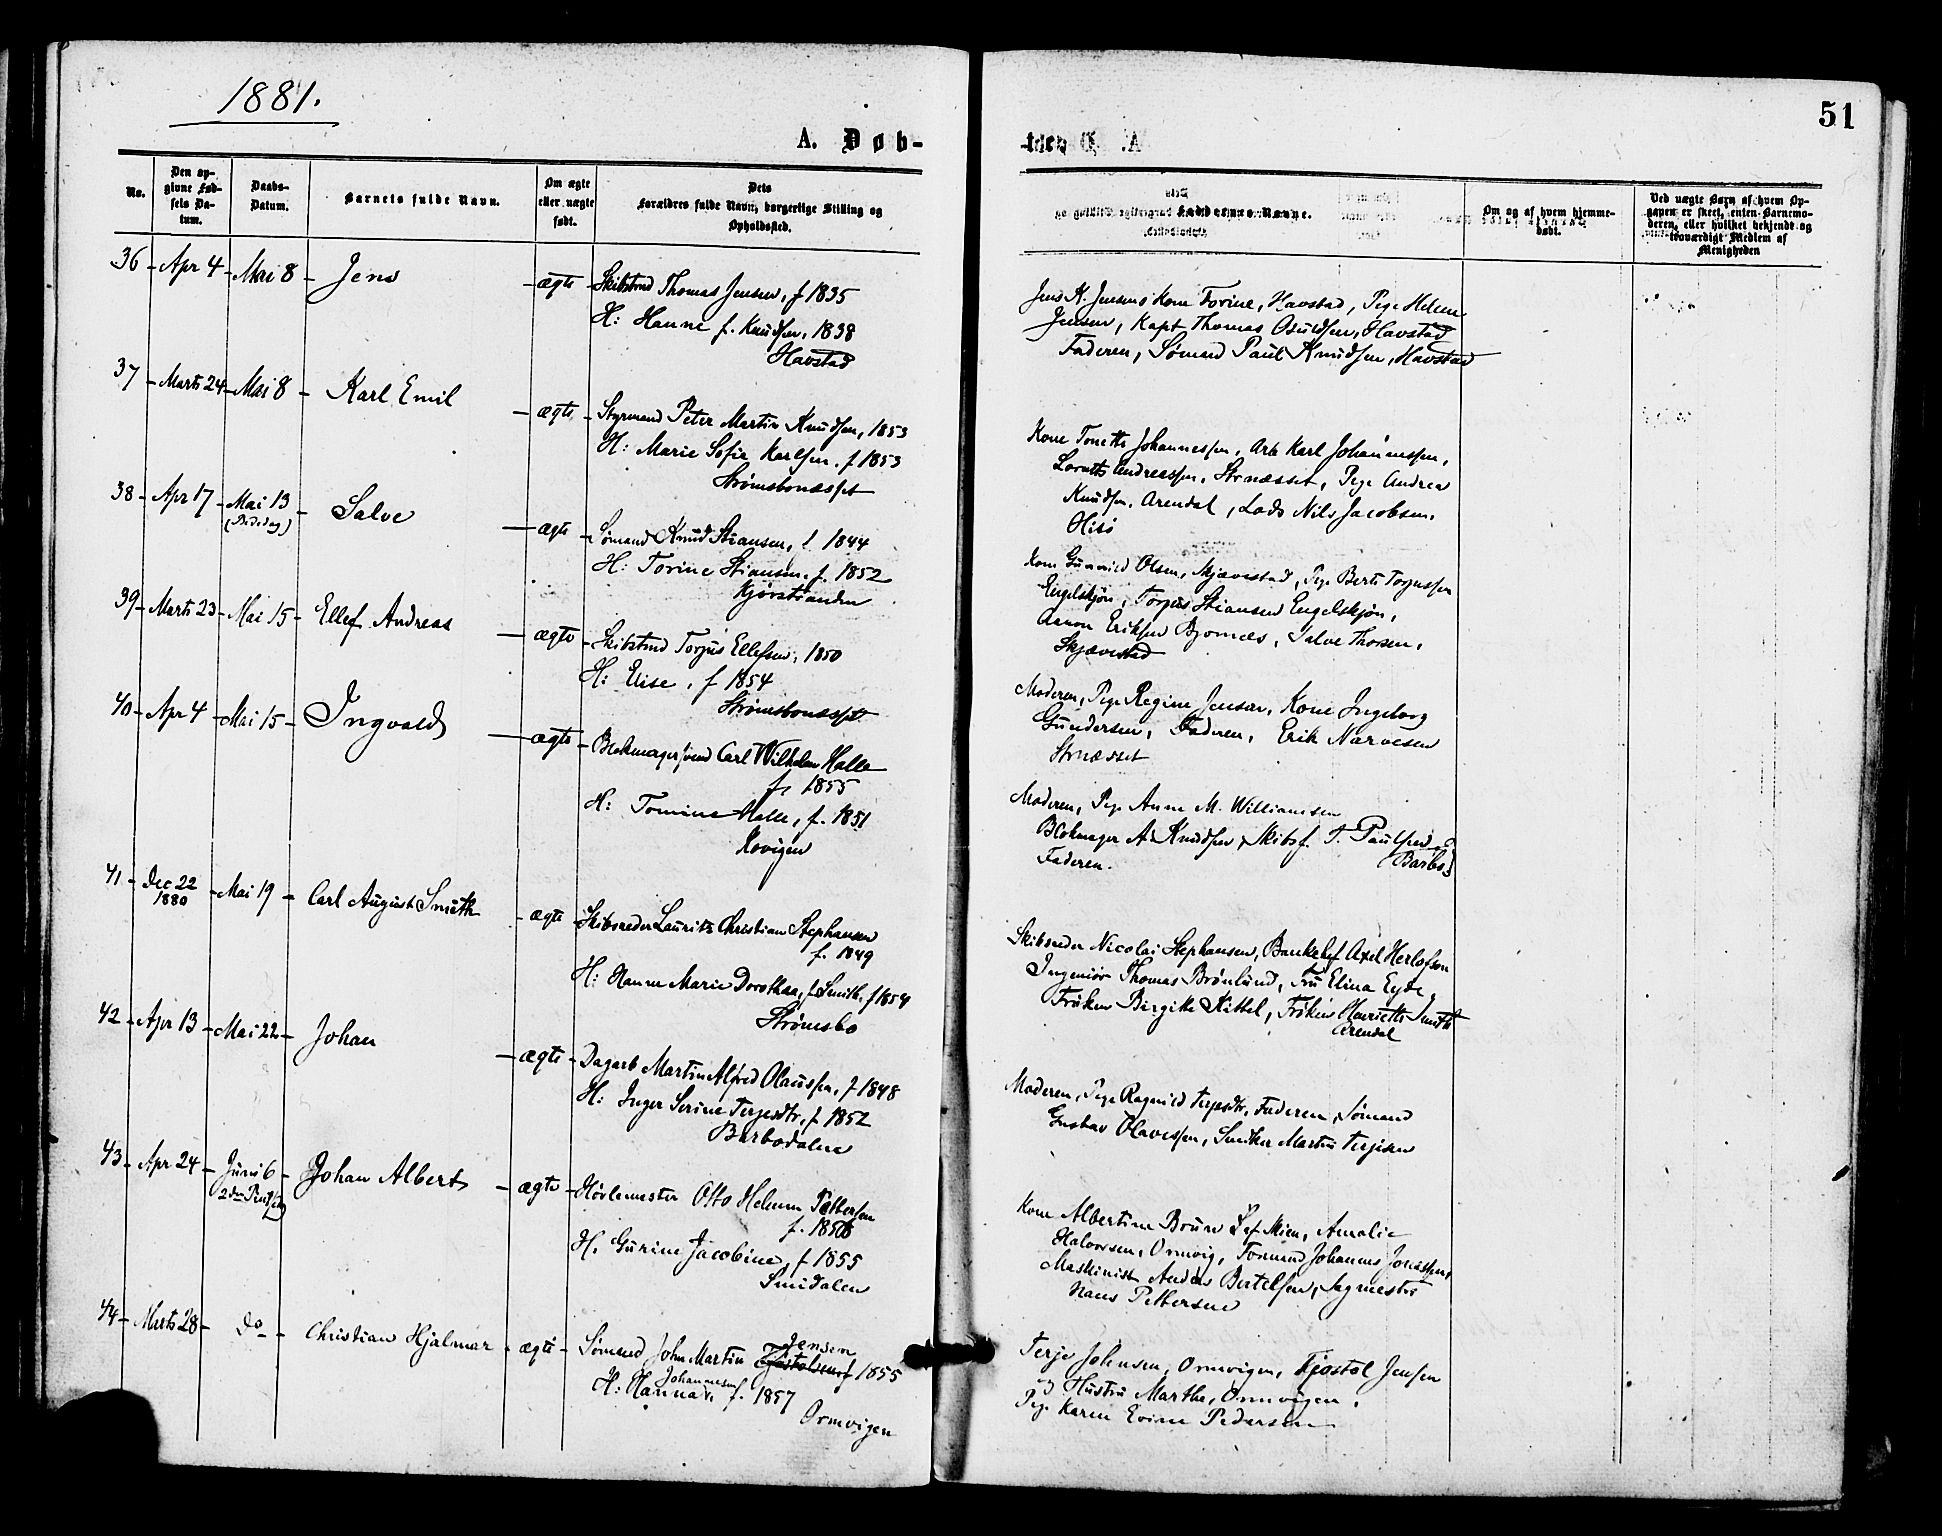 1881.
51
A. Døb-
No.
Den op-
givne Fød-
sels Da-
tum.
Daabs-
Datum.
Barnets fulde Navn.
Om ægte
eller uægte
født.
Dets
Forældres fulde Navn, borgerlige Stilling og
Opholdssted.
Faddernes Navne.
Om og af hvem hjemme-
døbt.
Ved uægte Børn af hvem Op-
gaven er skeet, enten Barnemo-
deren, eller hvilket bekjendt og
troværdigt Medlem af
Menigheden
36 - Apr 4 - Mai 8 - Jens - ægte - Skibstmd Thomas Jensen, f 1835
H: Hanne f. Knudsen, 1838
Havstad
Jens K. Jensens Kone Torine, Havstad, Pige Helene
Jensen, Kapt Thomas Osuldsen, Havstad
Faderen, Sømand Paul Knudsen, Havstad
37 - Marts 24 - Mai 8 - Karl Emil - ægte - Styrmand Peter Martin Knudsen, 1853
H: Marie Sofie Karlsen. f 1853
Strømsbonæsset
Kone Tonette Johannessen, Arb Karl Johannessen,
Andreassen, Strnæsset, Pige Andrea
Knudsen, Arendal, Lods Nils Jacobsen,
Hisø
38 - Apr 17 - Mai 13 - Salve - ægte - Sømand Knud Stiansen, f 1844
(Bededag)
H: Torine Stiansen. f. 1852
Kjørstranden
Kone Gunnild Olsen, Skjævestad, Pige Berte Torjussen
Engelskjøn, Torjus Stiansen Engelskjøn,
Aanon Eriksen Bjornæs, Salve Thorsen,
Skjævestad
39 - Marts 23 - Mai 15 - Ellef Andreas - ægte - Skibstmd Torjus Ellefsen, 1850
H: Elise, f 1854
Strømsbonæsset
Moderen, Pige Regine Jensen, Kone Ingeborg
Gundersen, Faderen, Erik Narvesen
Strnæsset
40 - Apr 4 - Mai 15 - Ingvald - ægte - Blokmagersvend Carl Wilhelm Halle
f. 1855
H: Tomine Halle, f. 1851
Kovigen
Moderen, Pige Anne M. Williamsen
Blokmager A. Knudsen, Skibsf. T. Paulsen
Barbo
Faderen.
41 - Dec 22 - Mai 19 - Carl August Smith - ægte - Skibsreder Laurits Christian Stephansen
1880
f. 1849
H: Hanne Marie Dorothea, f. Smith, f 1854
Strømsbo
Skibsreder Nicolai Stephansen, Bankchef Axel Herlofson
Ingeniør Thomas Brønlund, Fru Elina Eyde,
Frøken Birgitte Kittel, Frøken Henriette Smith
Arendal
42 - Apr 13 - Mai 22 - Johan - ægte - Dagarb Martin Alfred Olaussen, f 1848
H: Inger Serine Terjesdtr. f 1852
Barbodalen
Moderen, Pige Ragnild Terjesdtr, Faderen, Sømand
Gustav Olavessen, Snedker Martin Terjesen
43 - Apr 24 - Juni 6 - Johan Albert - ægte - Høvlemester Otto Helmer Pettersen
f. 1856
H. Gurine Jacobine, f 1855
Smidalen
Kone Albertine Amalie
Halvorsen, Ormvig, Tømmd Johannes Jonassen,
Maskinist Anders Bertelsen, Sagmester
Hans Pettersen
44 - Marts 28 - do - Christian Hjalmar - ægte - Sømand John Martin Jensen 1855
H: Hanna Johannesen f. 1857
Ormvigen
Terje Johnsen, Ormvigen, Kjostol Jensen
og Hustru Marthe, Ormvigen,
Pige Karen Evine Pedersen